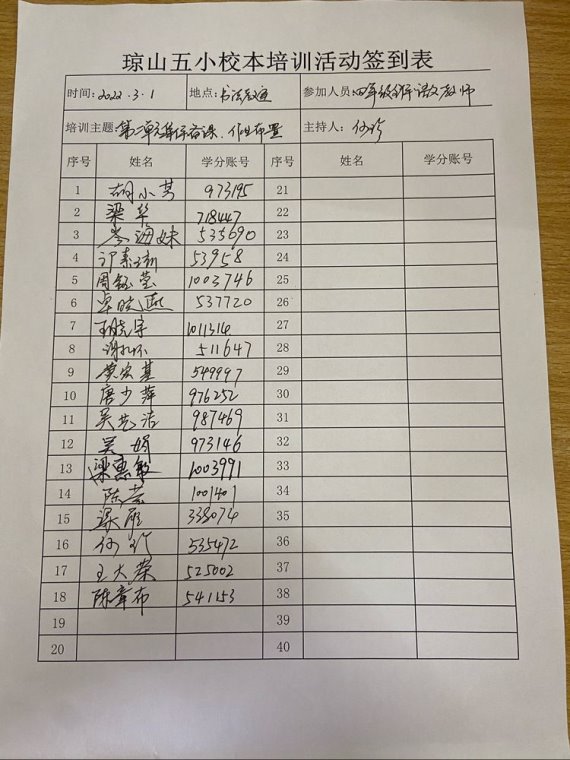 琼山五小校本培训活动签到表
时间:2022.3.1 地点:书法教室 参加人员:四年级全体语文教师
培训主题:第二单元集体备课、作业布置 主持人:何珍
序号 姓名 学分账号 序号 姓名 学分账号
1 胡小芳 973195 21
2 梁华 718447 22
3 岑海妹 535690 23
4 53958 24
5 周钰莹 1003746 25
6 卓晓燕 537720 26
7 王晓宇 1011314 27
8 511647 28
9 黄宏基 549997 29
10 唐少萍 976252 30
11 吴艺洁 987469 31
12 吴娟 973146 32
13 梁惠敏 1003991 33
14 陈 1001407 34
15 梁雁 338074 35
16 何珍 535472 36
17 王大荣 525002 37
18 陈章布 541153 38
19 39
20 40